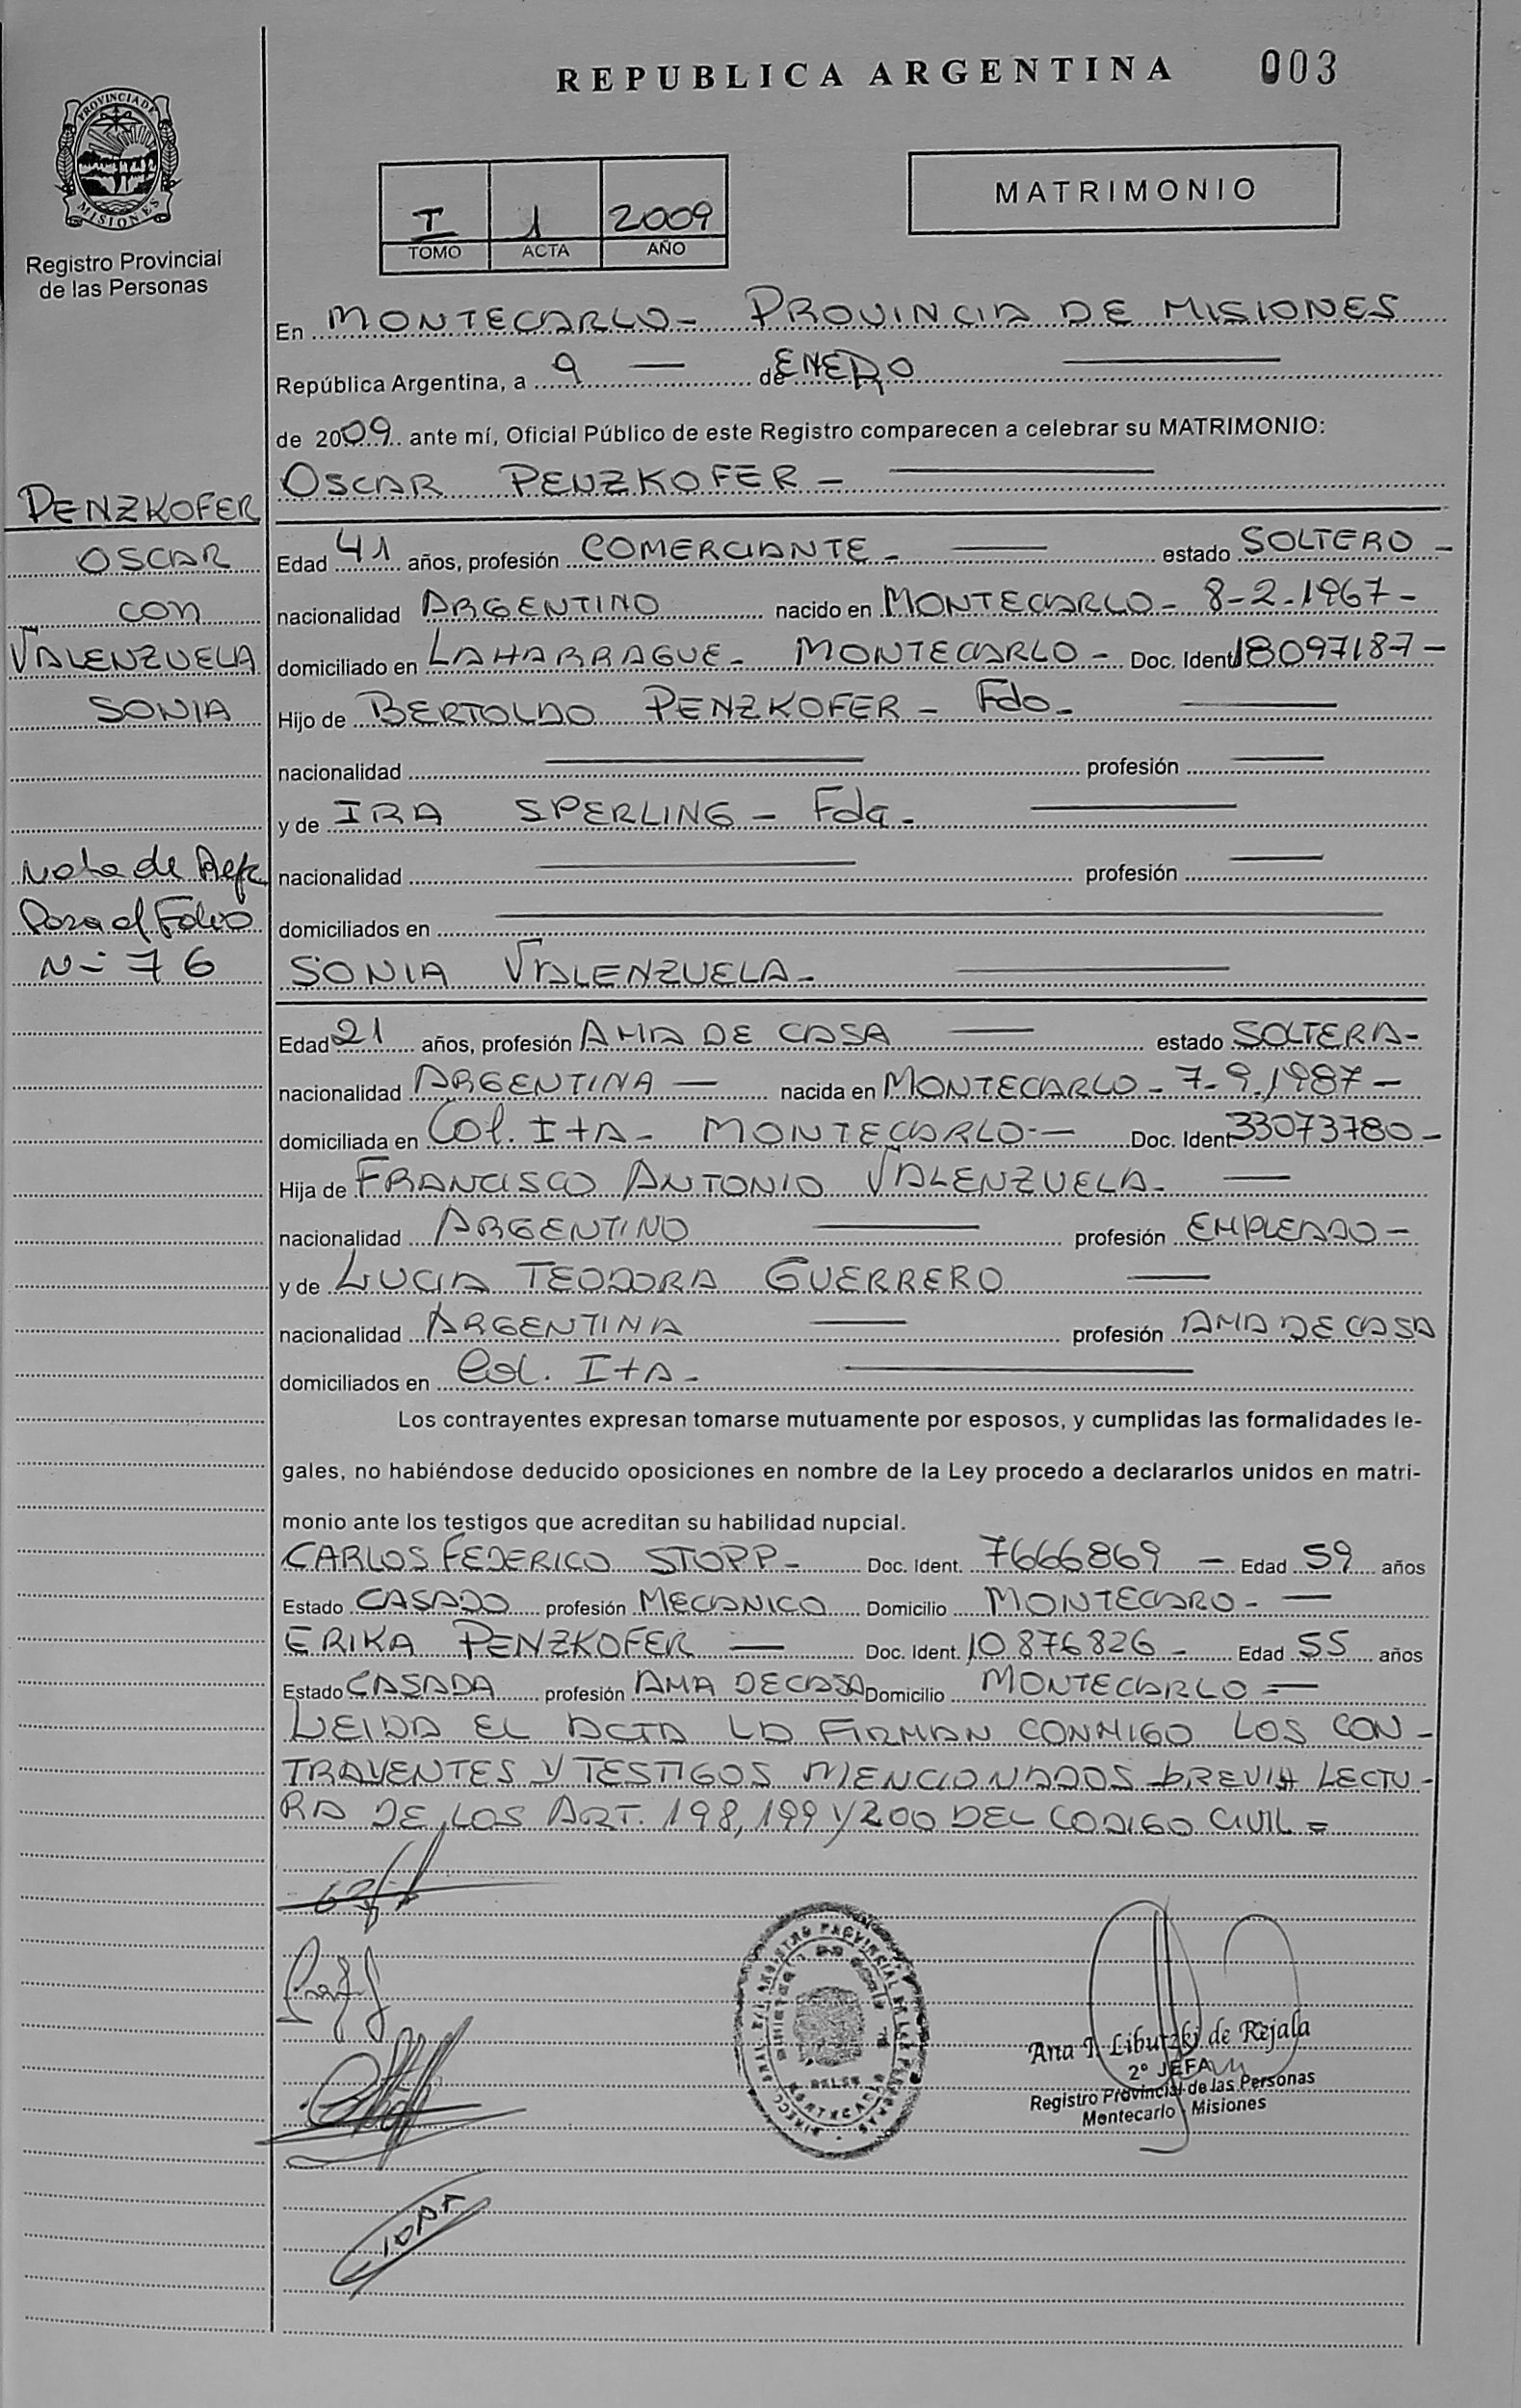 REPUBLICA ARGENTINA 003
PROVINCIA DE MISIONES
Registro Provincial
de las Personas
I 1 2009
TOMO ACTA AÑO
MATRIMONIO
En MONTECARLO - PROVINCIA DE MISIONES
República Argentina, a 9 — de ENERO
de 2009 ante mí, Oficial Público de este Registro comparecen a celebrar su MATRIMONIO:
OSCAR PENZKOFER -
PENZKOFER
OSCAR
con
VALENZUELA
SONIA
Nota de Refe
Para el Folio
N-76
Edad 41 años, profesión COMERCIANTE - estado SOLTERO -
nacionalidad ARGENTINO nacido en MONTECARLO - 8-2-1967 -
domiciliado en LAHARRAGUE - MONTECARLO - Doc. Ident 18097187 -
Hijo de BERTOLDO PENZKOFER - Fdo -
nacionalidad — profesión —
y de IRA SPERLING - Fda -
nacionalidad — profesión —
domiciliados en —
SONIA VALENZUELA -
Edad 21 años, profesión AMA DE CASA — estado SOLTERA -
nacionalidad ARGENTINA — nacida en MONTECARLO - 7-9-1987 -
domiciliada en Col. ItA - MONTECARLO - Doc. Ident 33073780 -
Hija de FRANCISCO ANTONIO VALENZUELA -
nacionalidad ARGENTINO — profesión EMPLEADO -
y de LUCIA TEODORA GUERRERO —
nacionalidad ARGENTINA — profesión AMA DE CASA
domiciliados en Col. ItA -
Los contrayentes expresan tomarse mutuamente por esposos, y cumplidas las formalidades le-
gales, no habiéndose deducido oposiciones en nombre de la Ley procedo a declararlos unidos en matri-
monio ante los testigos que acreditan su habilidad nupcial.
CARLOS FEDERICO STOPP - Doc. Ident. 7666869 - Edad 59 años
Estado CASADO profesión MECANICO Domicilio MONTECARO - —
ERIKA PENZKOFER — Doc. Ident. 10.876826 - Edad 55 años
Estado CASADA profesión AMA DE CASA Domicilio MONTECARLO =
LEIDA EL ACTA LA FIRMAN CONMIGO LOS CON-
TRAYENTES Y TESTIGOS MENCIONADOS PREVIA LECTU-
RA DE LOS ART. 198, 199 Y 200 DEL CODIGO CIVIL =
Ana I. Libutzki de Rejala
2º JEFA
Registro Provincial de las Personas
Montecarlo Misiones